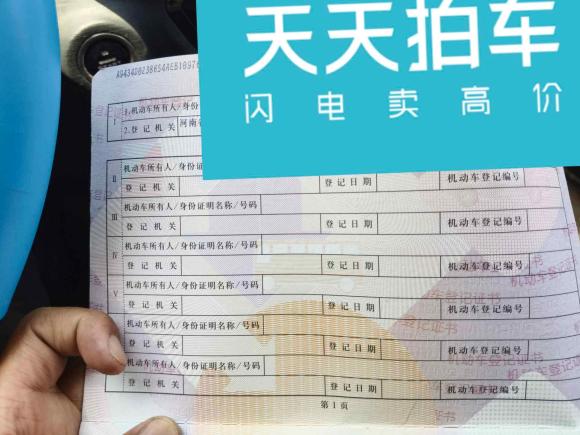 天天拍车
闪电卖高价
I
1.机动车所有人/身份
2.登记机关 河南
II
机动车所有人/身份证明名称/号码
登记机关 登记日期 机动车登记编号
III
机动车所有人/身份证明名称/号码
登记机关 登记日期 机动车登记编号
IV
机动车所有人/身份证明名称/号码
登记机关 登记日期 机动车登记编号
V
机动车所有人/身份证明名称/号码
登记机关 登记日期 机动车登记编号
机动车所有人/身份证明名称/号码
登记机关 登记日期 机动车登记编号
机动车所有人/身份证明名称/号码
登记机关 登记日期 机动车登记编号
第1页